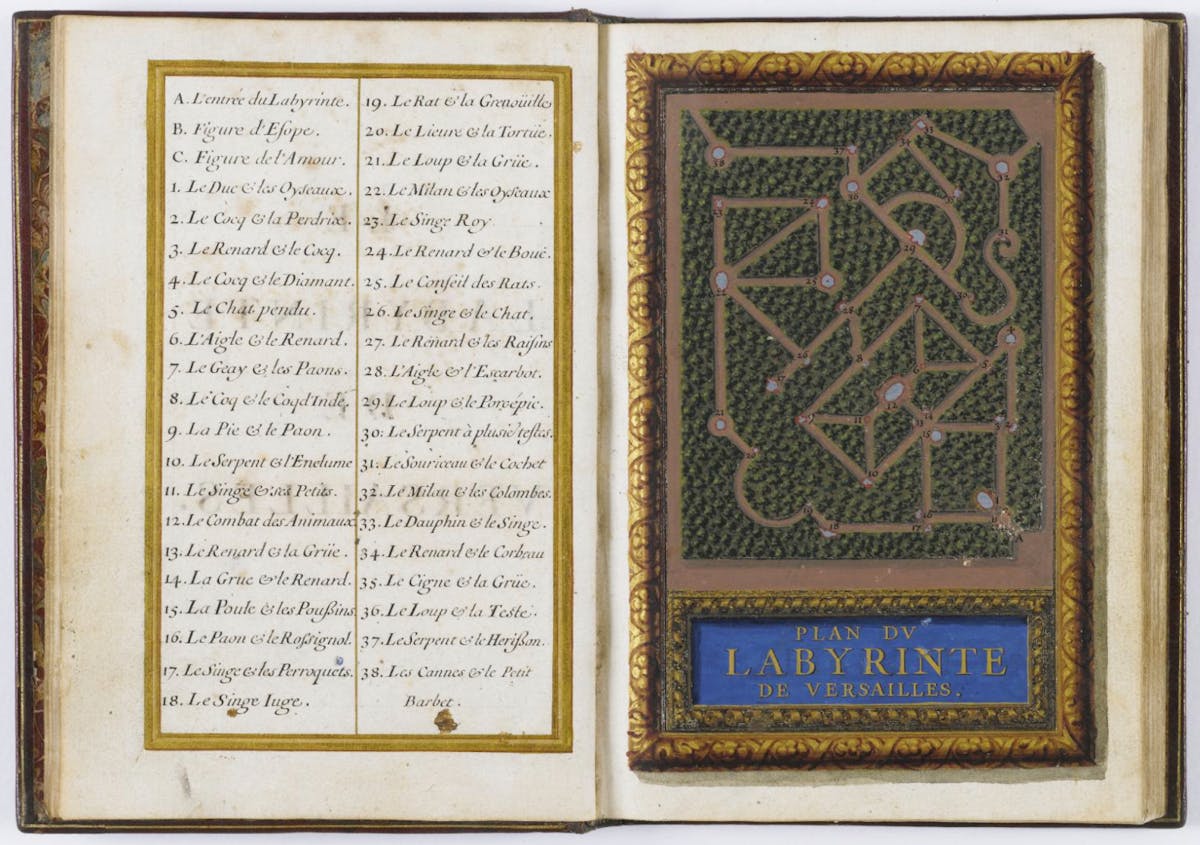 A. L'entrée du Labyrinte.
B. Figure d'Esope.
C. Figure de l'Amour.
1. Le Duc & les Oyseaux.
2. Le Cocq & la Perdrix.
3. Le Renard & le Cocq.
4. Le Cocq & le Diamant.
5. Le Chat pendu.
6. L'Aigle & le Renard.
7. Le Geay & les Paons.
8. Le Coq & le Coq d'Inde.
9. La Pie & le Paon.
10. Le Serpent & l'Enclume
11. Le Singe & ses Petits.
12. Le Combat des Animaux
13. Le Renard & la Grüe.
14. La Grüe & le Renard.
15. La Poule & les Poußins
16. Le Paon & le Roßignol.
17. Le Singe & les Perroquets.
18. Le Singe Iuge.
19. Le Rat & la Grenoüille
20. Le Lieure & la Tortüe.
21. Le Loup & la Grüe.
22. Le Milan & les Oyseaux
23. Le Singe Roy
24. Le Renard & le Bouc.
25. Le Conseil des Rats.
26. Le Singe & le Chat.
27. Le Renard & les Raisins
28. L'Aigle & l'Escarbot.
29. Le Loup & le Porcépic.
30. Le Serpent à plusie. testes.
31. Le Souriceau & le Cochet
32. Le Milan & les Colombes.
33. Le Dauphin & le Singe.
34. Le Renard & le Corbeau
35. Le Cigne & la Grüe.
36. Le Loup & la Teste.
37. Le Serpent & le Herißon.
38. Les Cannes & le Petit
Barbet.
PLAN DV
LABYRINTE
DE VERSAILLES.